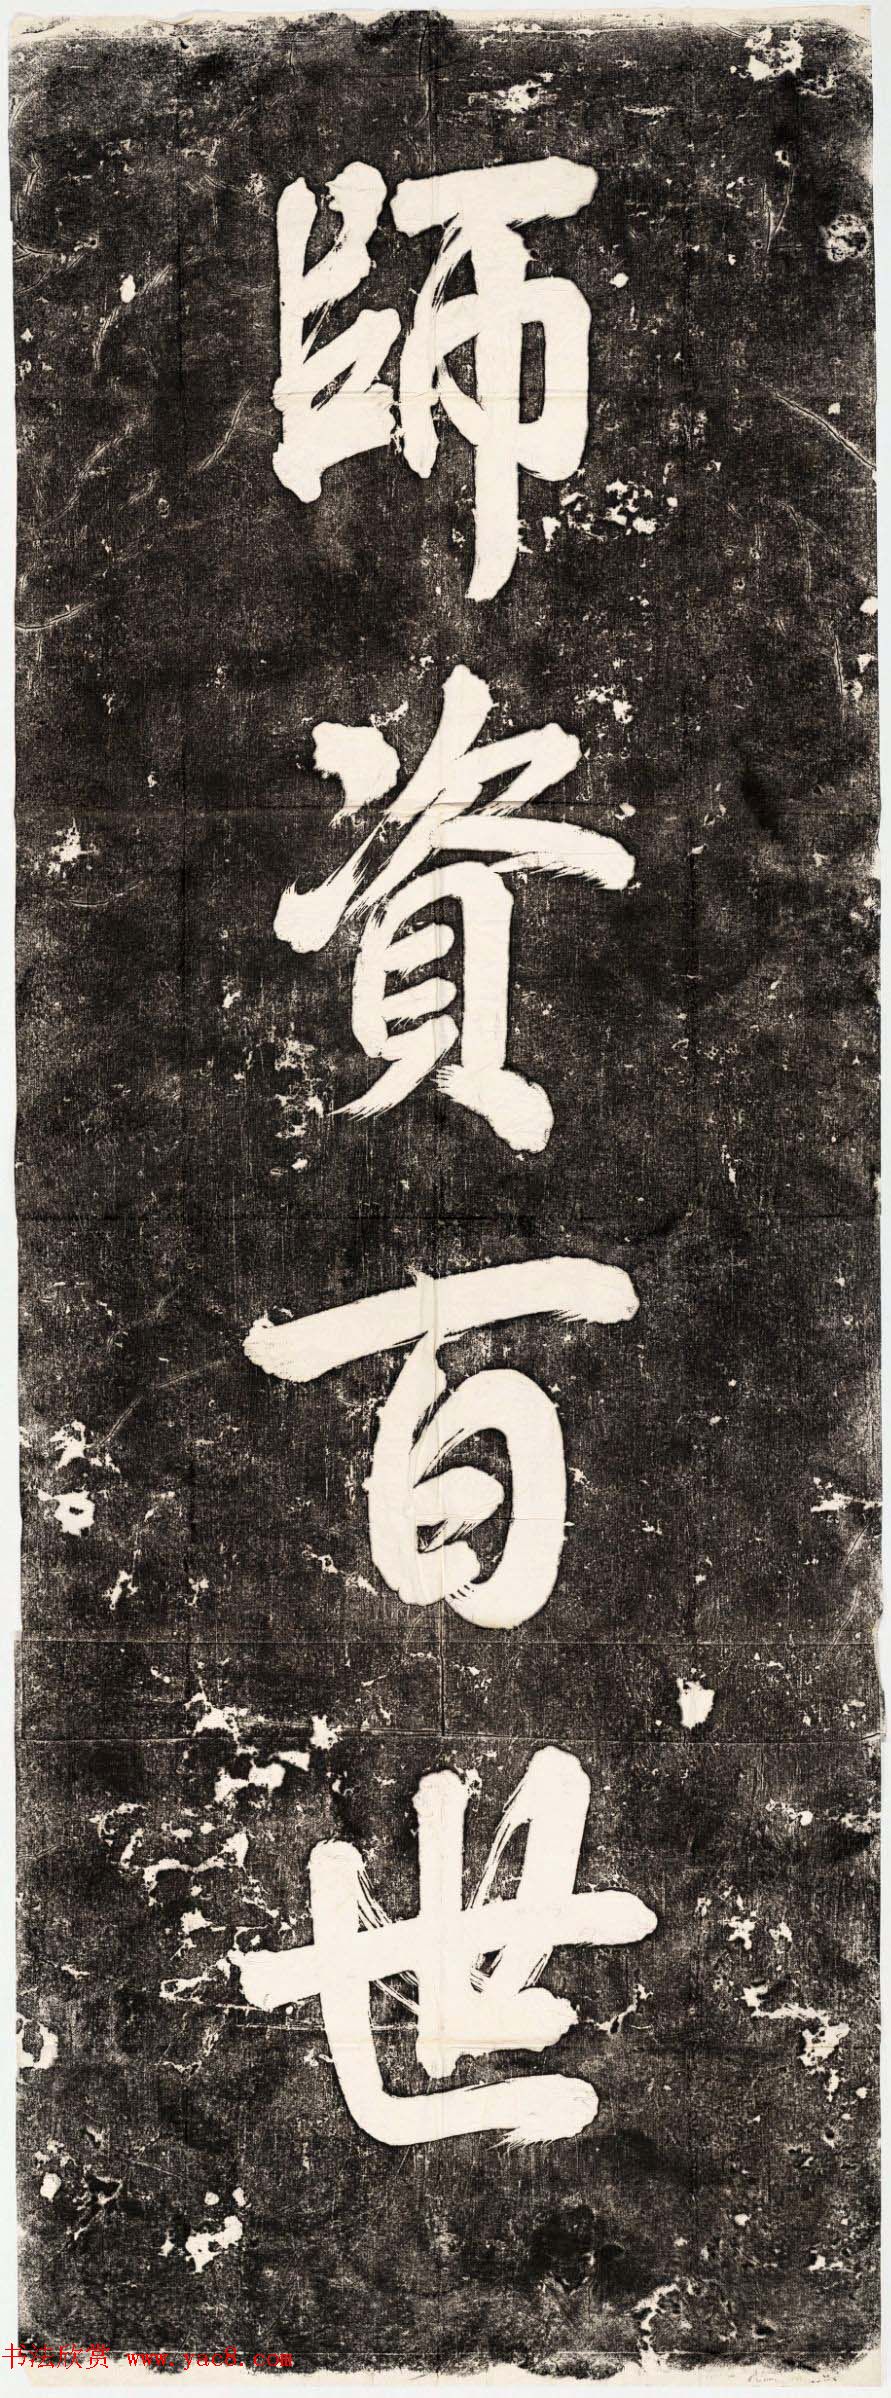 師資百世
书法欣赏 www.yac8.com